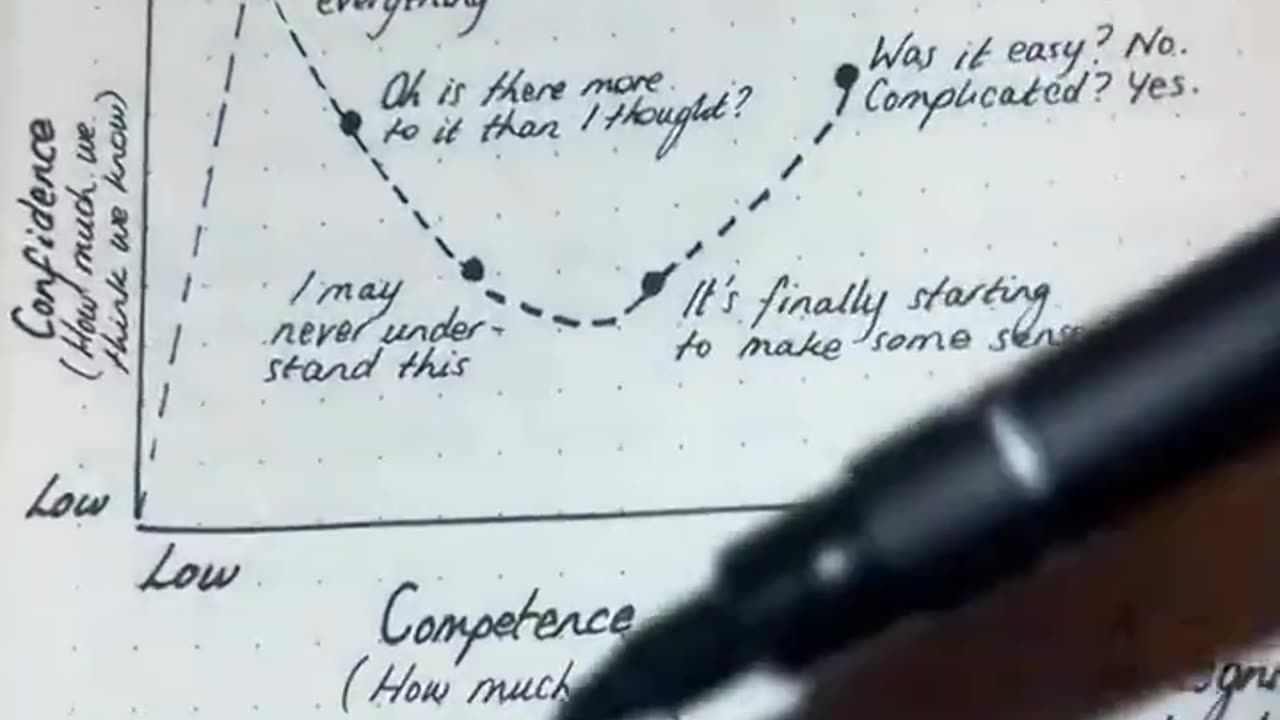 everything
Oh is there more
to it than I thought?
Was it easy? No.
Complicated? Yes.
Confidence
(How much we
think we know)
I may
never under-
stand this
It's finally starting
to make some sense
Low
Low
Competence
(How much